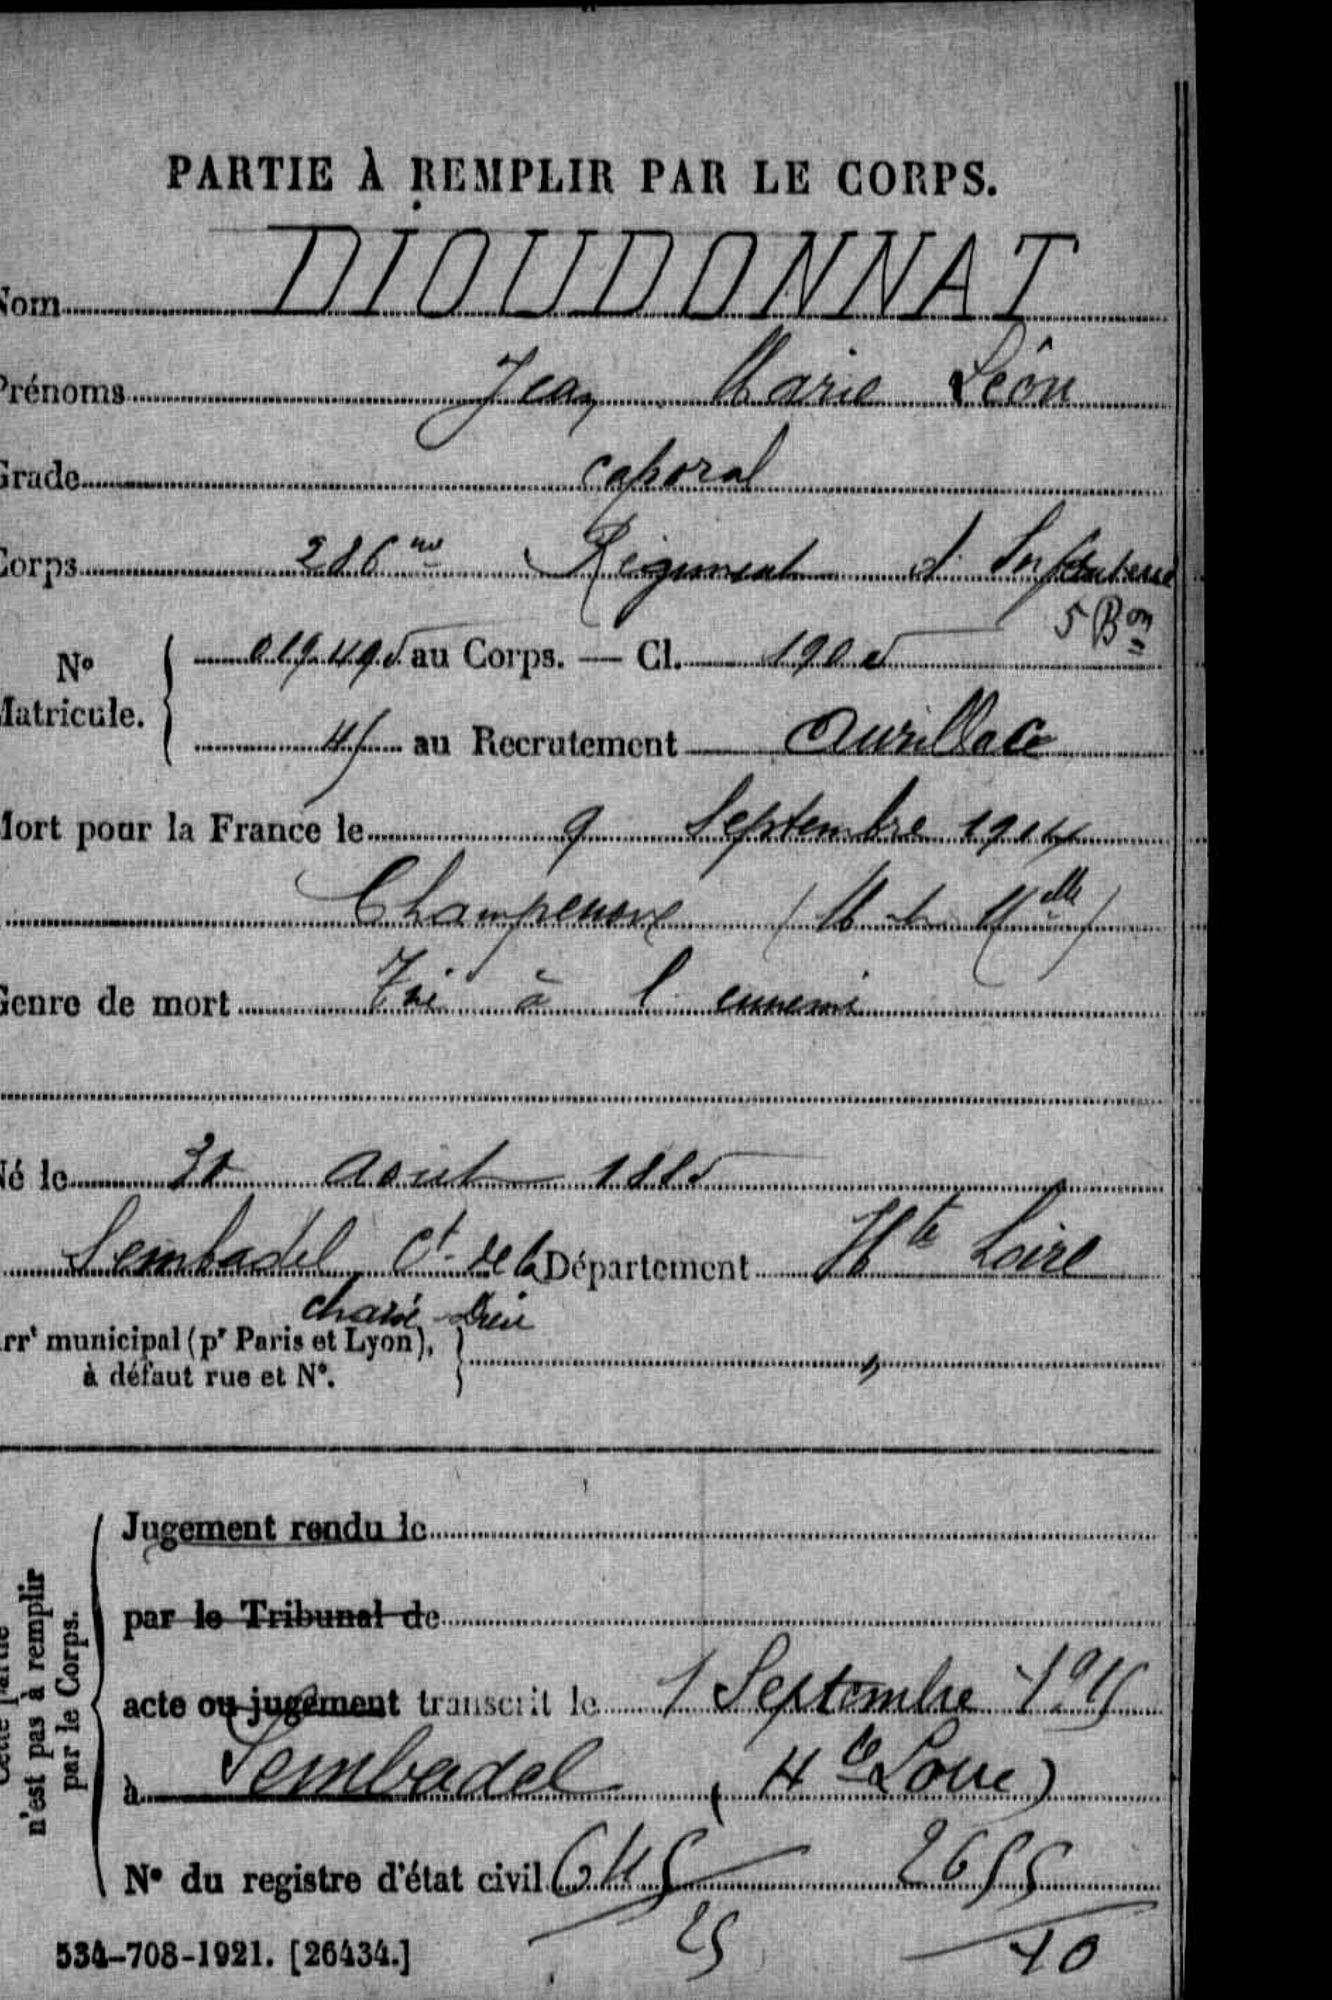 PARTIE À REMPLIR PAR LE CORPS.
Nom DIOUDONNAT
Prénoms Jean Marie Léon
Grade caporal
Corps 286me Régiment d'Infanterie
5 Bon
N° Matricule. 019495 au Corps. — Cl. 1905
au Recrutement Aurillac
Mort pour la France le 9 Septembre 1914
Champenoux (M et Melle)
Genre de mort Tué à l'ennemi
Né le 30 Août 1885
Sembadel Ct de la Département Hte Loire
chaise Dieu
Arrt municipal (pr Paris et Lyon),
à défaut rue et N°. "
Cette partie
n'est pas à remplir
par le Corps.
Jugement rendu le
par le Tribunal de
acte ou jugement transcrit le 1 Septembre 1915
à Sembadel (Hte Loire)
N° du registre d'état civil 645 2655
25 10
534-708-1921. [26434.]